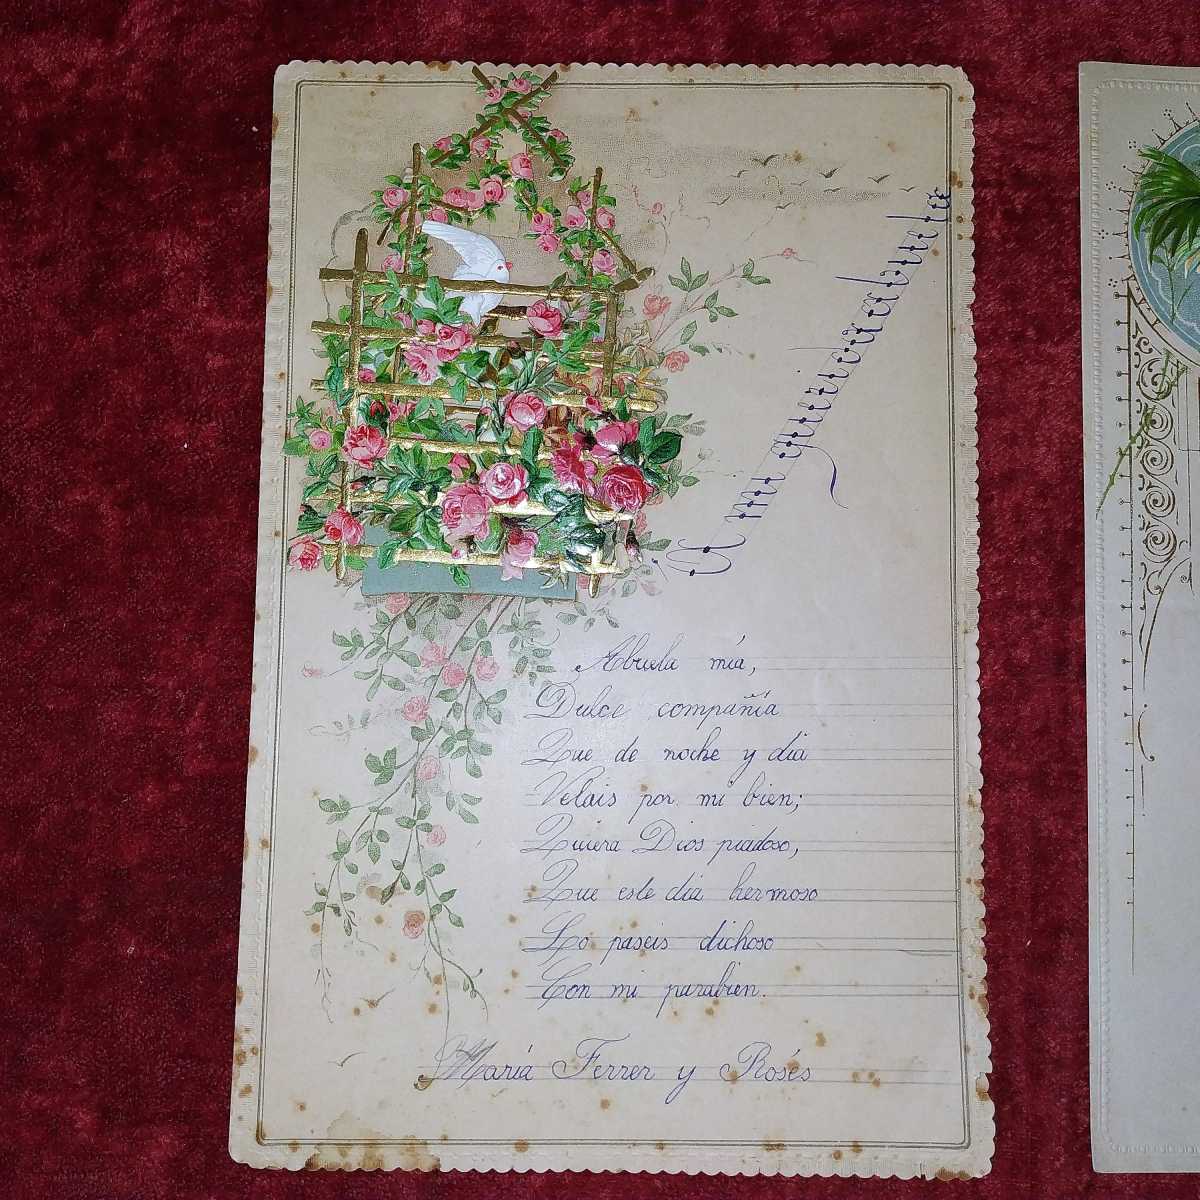 A mi querida abuela
Abuela mía,
Dulce compañía
Que de noche y dia
Velais por mi bien;
Quiera Dios piadoso,
Que este dia hermoso
Lo paseis dichoso
Con mi parabien.
María Ferrer y Rosés